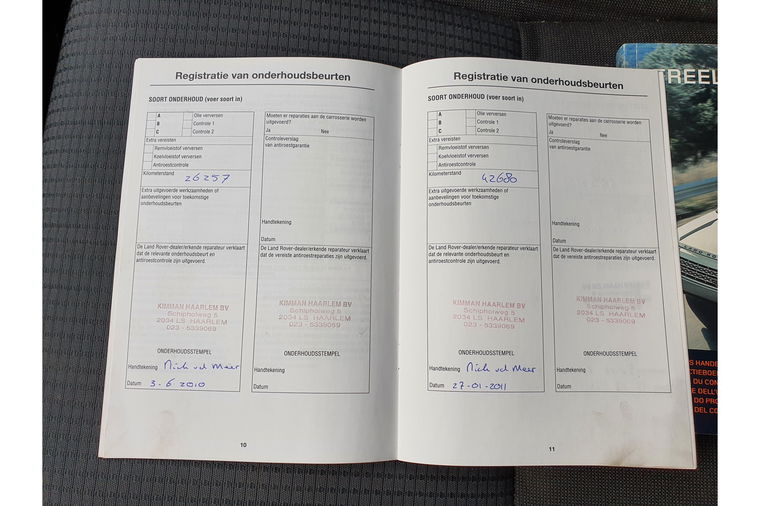 Registratie van onderhoudsbeurten
SOORT ONDERHOUD (voer soort in)
A Olie verversen
B Controle 1
C Controle 2
Extra vereisten
Remvloeistof verversen
Koelvloeistof verversen
Antiroestcontrole
Kilometerstand 26257
Extra uitgevoerde werkzaamheden of
aanbevelingen voor toekomstige
onderhoudsbeurten
De Land Rover-dealer/erkende reparateur verklaart
dat de relevante onderhoudsbeurt en
antiroestcontrole zijn uitgevoerd.
KIMMAN HAARLEM BV
Schipholweg 5
2034 LS HAARLEM
023 - 5339069
ONDERHOUDSSTEMPEL
Handtekening Nick vd Meer
Datum 3-6 2010
Moeten er reparaties aan de carrosserie worden
uitgevoerd?
Ja Nee
Controleverslag
van antiroestgarantie
Handtekening
Datum
De Land Rover-dealer/erkende reparateur verklaart
dat de vereiste antiroestreparaties zijn uitgevoerd.
KIMMAN HAARLEM BV
Schipholweg 5
2034 LS HAARLEM
023 - 5339069
ONDERHOUDSSTEMPEL
Handtekening
Datum
10
Registratie van onderhoudsbeurten
SOORT ONDERHOUD (voer soort in)
A Olie verversen
B Controle 1
C Controle 2
Extra vereisten
Remvloeistof verversen
Koelvloeistof verversen
Antiroestcontrole
Kilometerstand 42680
Extra uitgevoerde werkzaamheden of
aanbevelingen voor toekomstige
onderhoudsbeurten
De Land Rover-dealer/erkende reparateur verklaart
dat de relevante onderhoudsbeurt en
antiroestcontrole zijn uitgevoerd.
KIMMAN HAARLEM BV
Schipholweg 5
2034 LS HAARLEM
023 - 5339069
ONDERHOUDSSTEMPEL
Handtekening Nick vd Meer
Datum 27-01-2011
Moeten er reparaties aan de carrosserie worden
uitgevoerd?
Ja Nee
Controleverslag
van antiroestgarantie
Handtekening
Datum
De Land Rover-dealer/erkende reparateur verklaart
dat de vereiste antiroestreparaties zijn uitgevoerd.
KIMMAN HAARLEM BV
Schipholweg 5
2034 LS HAARLEM
023 - 5339069
ONDERHOUDSSTEMPEL
Handtekening
Datum
11
REEL
S HANDE
CTIEBOE
DU CON
E DELL'
DO PRO
DEL CO